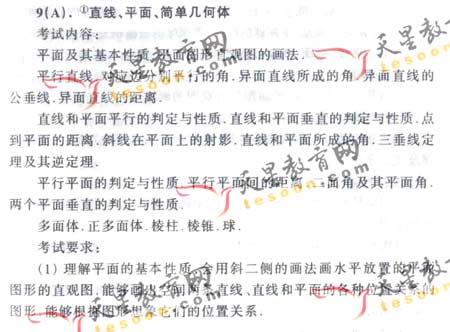 9(A).①直线、平面、简单几何体
考试内容:
平面及其基本性质.平面图形直观图的画法.
平行直线.对应边分别平行的角.异面直线所成的角.异面直线的
公垂线.异面直线的距离.
直线和平面平行的判定与性质.直线和平面垂直的判定与性质.点
到平面的距离.斜线在平面上的射影.直线和平面所成的角.三垂线定
理及其逆定理.
平行平面的判定与性质.平行平面间的距离.二面角及其平面角.
两个平面垂直的判定与性质.
多面体.正多面体.棱柱.棱锥.球.
考试要求:
(1) 理解平面的基本性质,会用斜二侧的画法画水平放置的平面
图形的直观图,能够画出空间两条直线、直线和平面的各种位置关系的
图形,能够根据图形想象它们的位置关系.
天星教育网
tesoon.com
天星教育网
tesoon.com
天星教育网
tesoon.com
天星教育网
tesoon.com